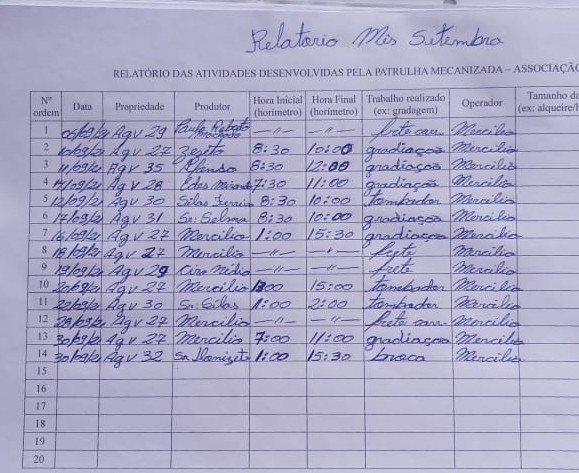 Relatorio Mis Setembro
RELATÓRIO DAS ATIVIDADES DESENVOLVIDAS PELA PATRULHA MECANIZADA – ASSOCIAÇÃO
Nº ordem Data Propriedade Produtor Hora Inicial (horímetro) Hora Final (horímetro) Trabalho realizado (ex: gradagem) Operador Tamanho da (ex: alqueire/h
1 Agv 29 Paulo Roberto —"— —"— frete Mercilio
2 10/09/21 Agv 27 Zezito 8:30 10:00 gradiaçao Mercilio
3 11/09/21 Agv 35 Afonso 8:30 12:00 gradiaçao Mercilio
4 Agv 28 7:30 11:00 gradiaçao Mercilio
5 12/09/21 Agv 30 Silas 8:30 10:00 tombador Mercilio
6 17/09/21 Agv 31 Sr: Selma 8:30 10:00 gradiaçao Mercilio
7 16/09/21 Agv 27 Mercilio 1:00 15:30 gradiaçao Mercilio
8 18/09/21 Agv 27 Mercilio —"— —"— frete Mercilio
9 19/09/21 Agv 29 —"— —"— frete Mercilio
10 20/09/21 Agv 27 Mercilio 15:00 tombador Mercilio
11 22/09/21 Agv 30 Sr: Silas 1:00 2:00 tombador Mercilio
12 Agv 27 Mercilio —"— —"— frete Mercilio
13 30/09/21 Agv 27 Mercilio 7:00 11:00 gradiaçao Mercilio
14 30/09/21 Agv 32 Sr. 1:00 15:30 broca Mercilio
15
16
17
18
19
20